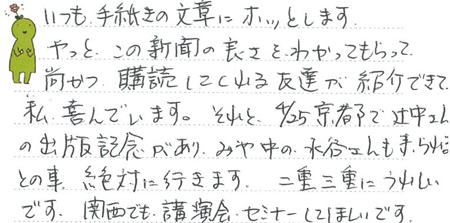 いつも、手紙きの文章にホッとします。
やっと、この新聞の良さをわかってもらって、
尚かつ、購読してくれる友達が紹介できて
私、喜んでいます。それと、4/25京都で辻中さん
の出版記念があり、みや中の、水谷さんも来られる
との事、絶対に行きます。二重三重にうれしい
です。関西でも、講演会、セミナーしてほしいです。